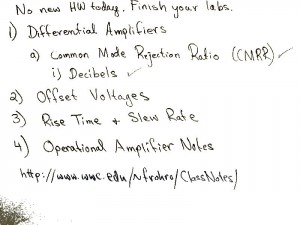 No new HW today. Finish your labs.
1) Differential Amplifiers
a) Common Mode Rejection Ratio (CMRR) ✓
i) Decibels ✓
2) Offset Voltages
3) Rise Time + Slew Rate
4) Operational Amplifier Notes
http://www.wwc.edu/~frohro/ClassNotes/